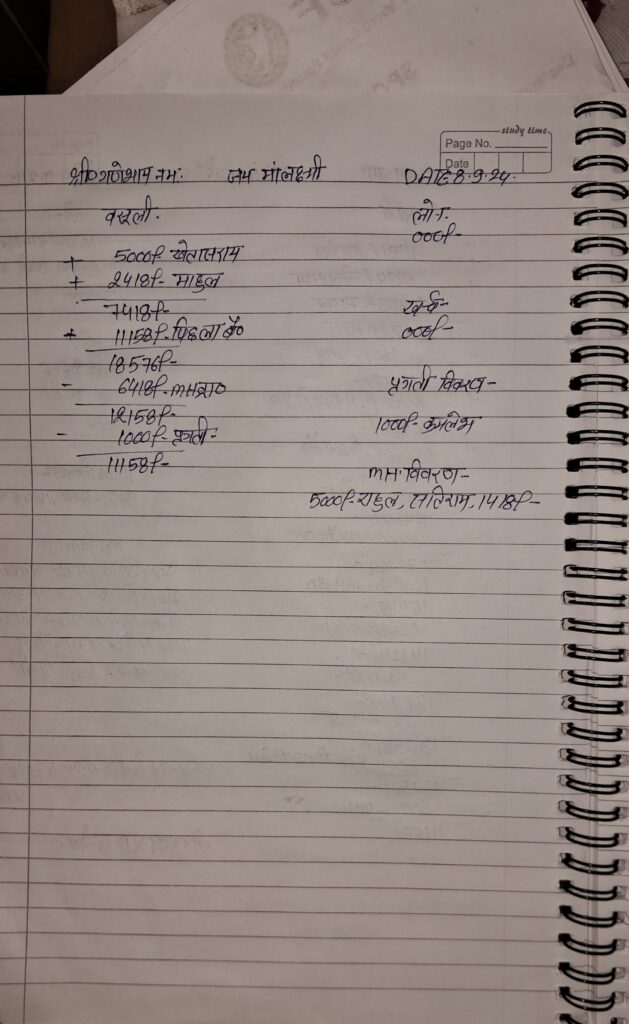 study time
Page No.
Date
श्री गणेशाय नमः जय मां लक्ष्मी DATE 8.9.24.
वसूली. लोन.
000/-
+ 5000/- खेतासराम
+ 2418/- माहुल
7418/- खर्च-
+ 11158/- पिछला बै० 000/-
18576/-
- 6418/- mH शा० प्रगती विवरण-
12158/-
- 1000/- प्रगती- 1000/- कमलेश
11158/-
mH. विवरण-
5000/- राहुल, 1418/-